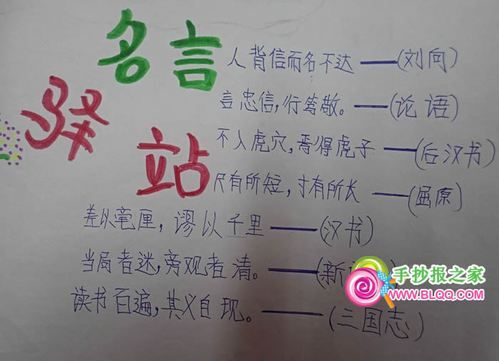 名言
驿站
人背信而名不达——(刘向)
言忠信,行笃敬。——(论语)
不入虎穴,焉得虎子——(后汉书)
尺有所短,寸有所长——(屈原)
差以毫厘,谬以千里——(汉书)
当局者迷,旁观者清。——(新
读书百遍,其义自现。——(三国志)
手抄报之家
WWW.BLQQ.COM